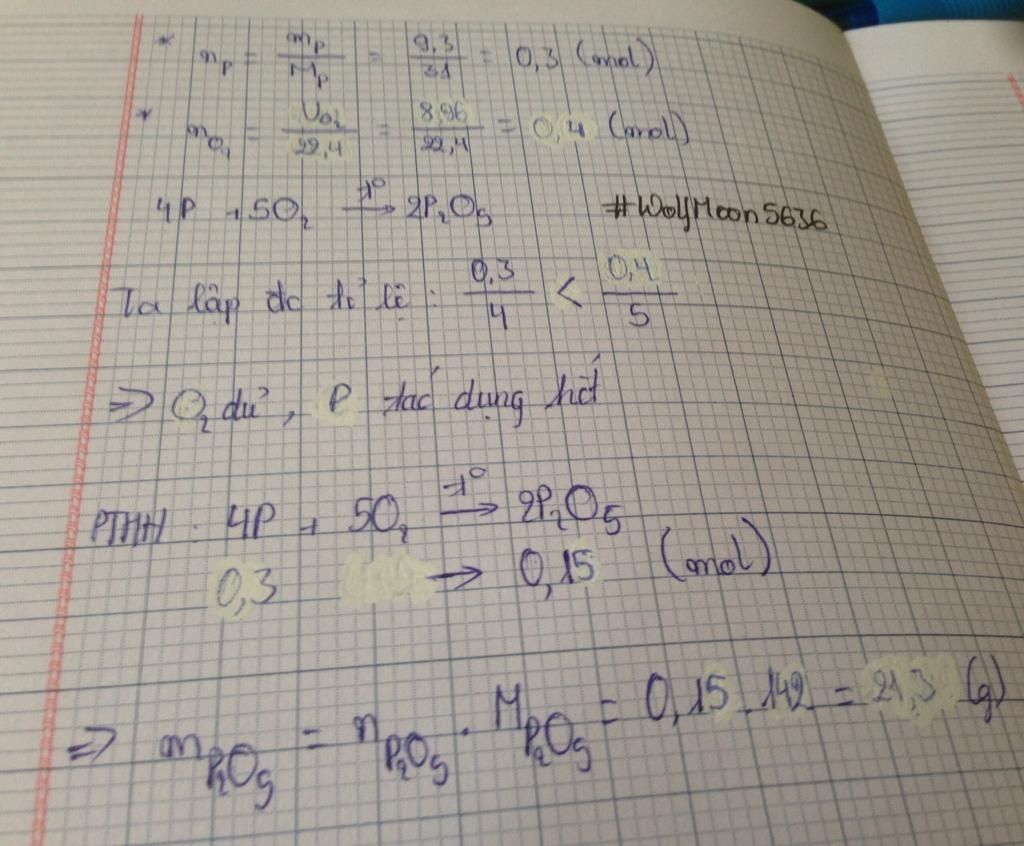 * nP = mP/MP = 9,3/31 = 0,3 (mol)
* nO2 = VO2/22,4 = 8,96/22,4 = 0,4 (mol)
4P + 5O2 -t°-> 2P2O5 #WolfMoon5636
Ta lập đc tỉ lệ : 0,3/4 < 0,4/5
=> O2 dư, P tác dụng hết
PTHH : 4P + 5O2 -t°-> 2P2O5
0,3 → 0,15 (mol)
=> mP2O5 = nP2O5 . MP2O5 = 0,15 . 142 = 21,3 (g)